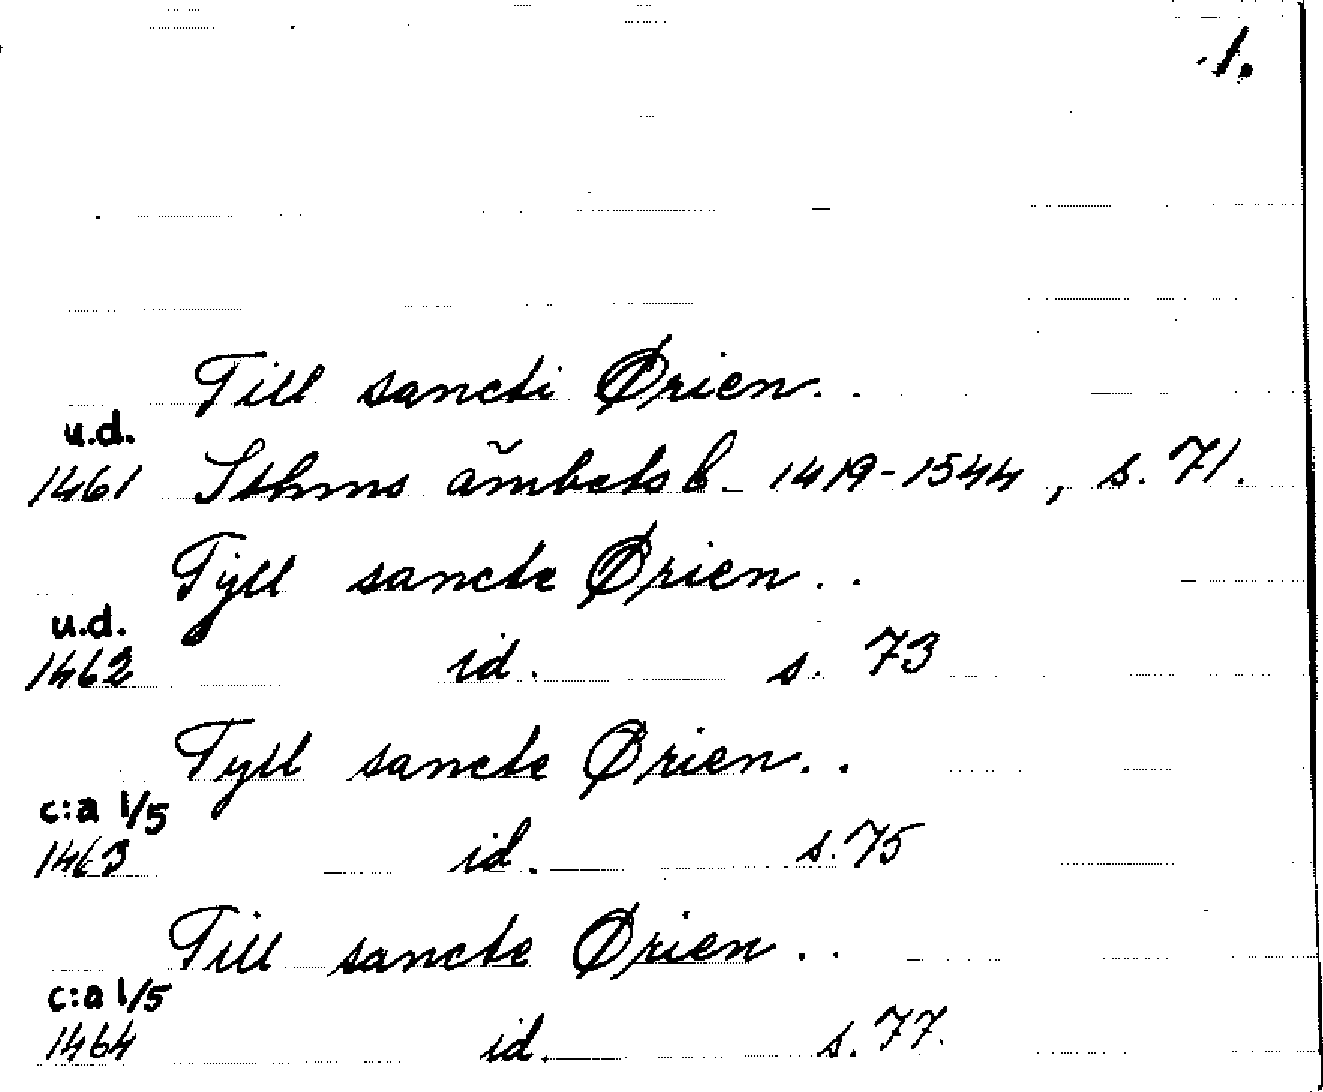 1.
Till sancti Ørien. .
u.d.
1461 Sthms ämbetsb. 1419-1544, s. 71.
Tyll sancte Ørien. .
u.d.
1462 id. s. 73
Tyll sancte Ørien. .
c:a 1/5
1463 id. s. 75
Till sancte Ørien. .
c:a 1/5
1464 id. s. 77.